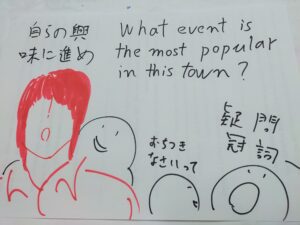 自らの興
味に進め
What event is
the most popular
in this town?
むらつき
なさいって
疑問
冠詞